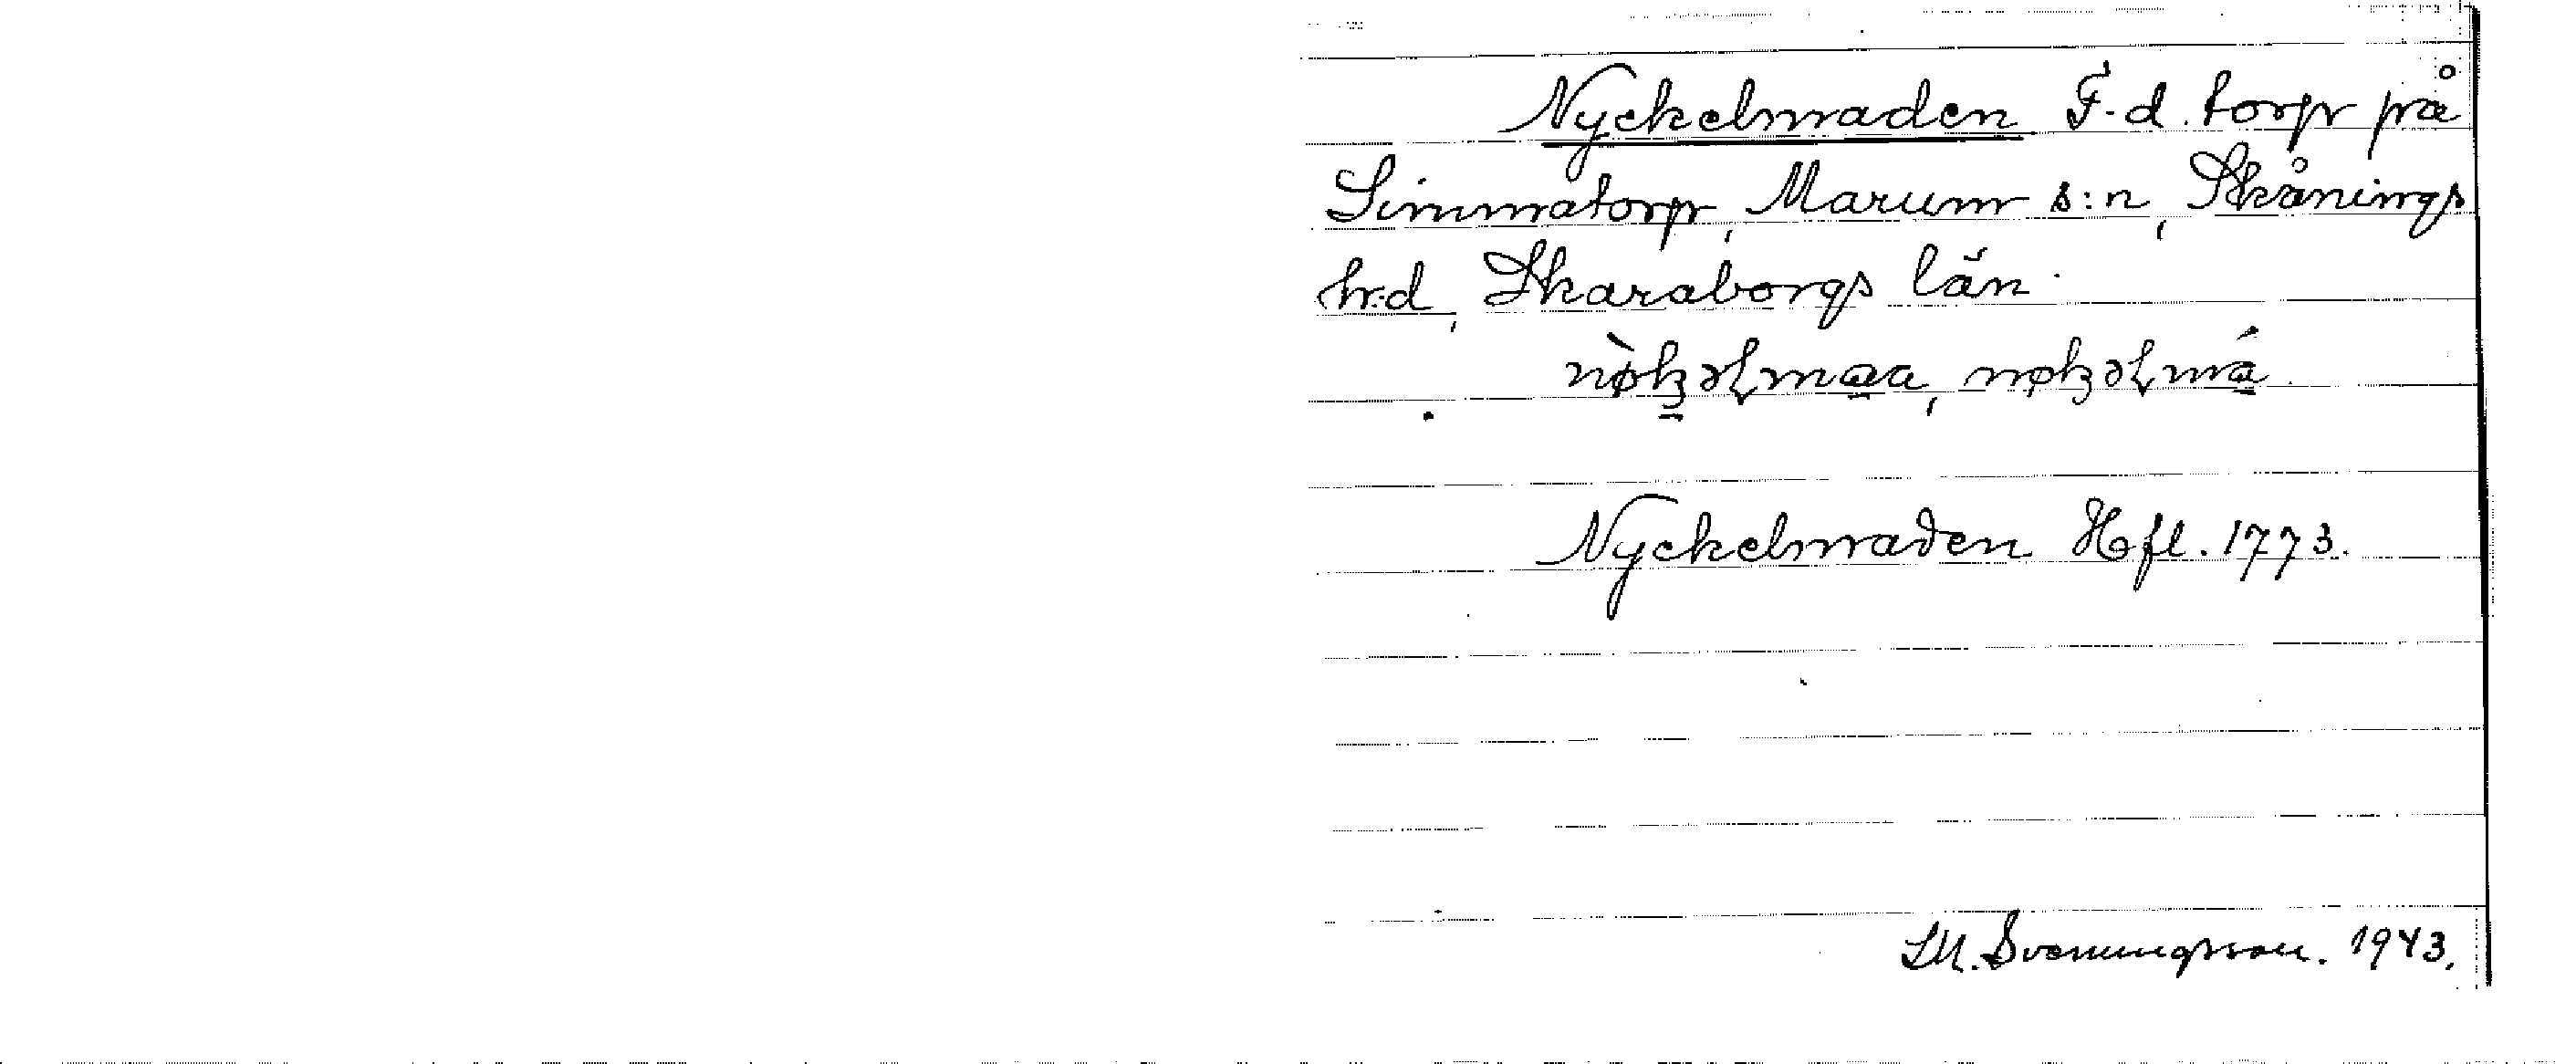 Nyckelmaden F.d. torp på
Simmatorp, Marum s:n, Skånings
h:d, Skaraborgs län.
Nyckelmaden Hfl. 1773.
M. Svenungsson. 1943.